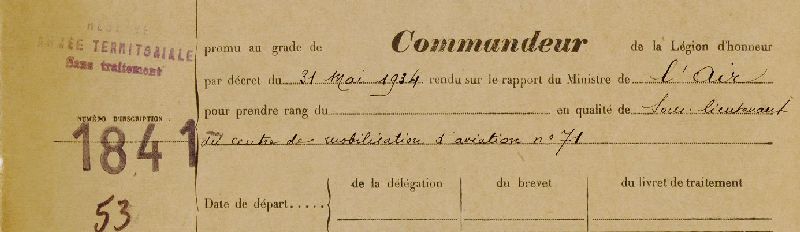 RÉSERVE
ARMÉE TERRITORIALE
Sans traitement
NUMÉRO D'INSCRIPTION
1841
53
promu au grade de Commandeur de la Légion d'honneur
par décret du 31 Mai 1934 rendu sur le rapport du Ministre de l'Air
pour prendre rang du en qualité de Sous-lieutenant
du centre de mobilisation d'aviation n° 71
de la délégation du brevet du livret de traitement
Date de départ.....